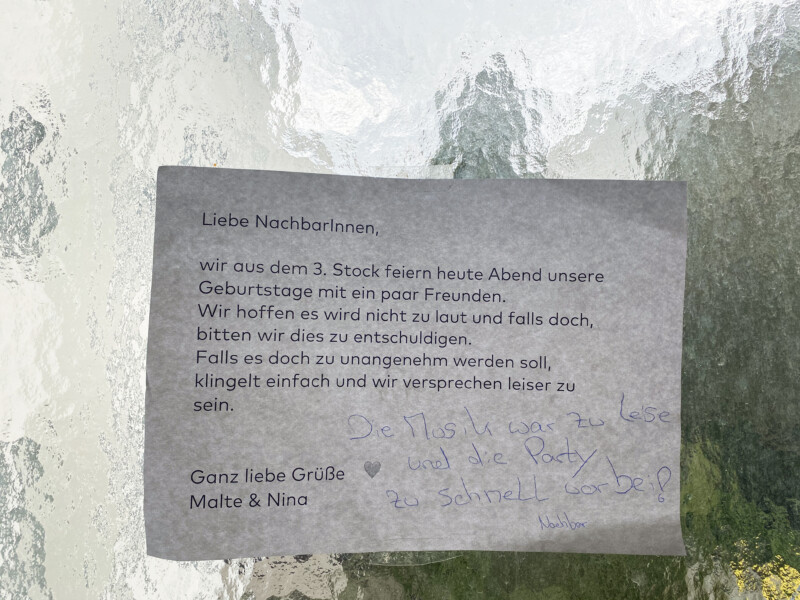 Liebe NachbarInnen,
wir aus dem 3. Stock feiern heute Abend unsere
Geburtstage mit ein paar Freunden.
Wir hoffen es wird nicht zu laut und falls doch,
bitten wir dies zu entschuldigen.
Falls es doch zu unangenehm werden soll,
klingelt einfach und wir versprechen leiser zu
sein.
Die Musik war zu Leise
und die Party
zu schnell vorbei!
Nachbar
Ganz liebe Grüße
Malte & Nina